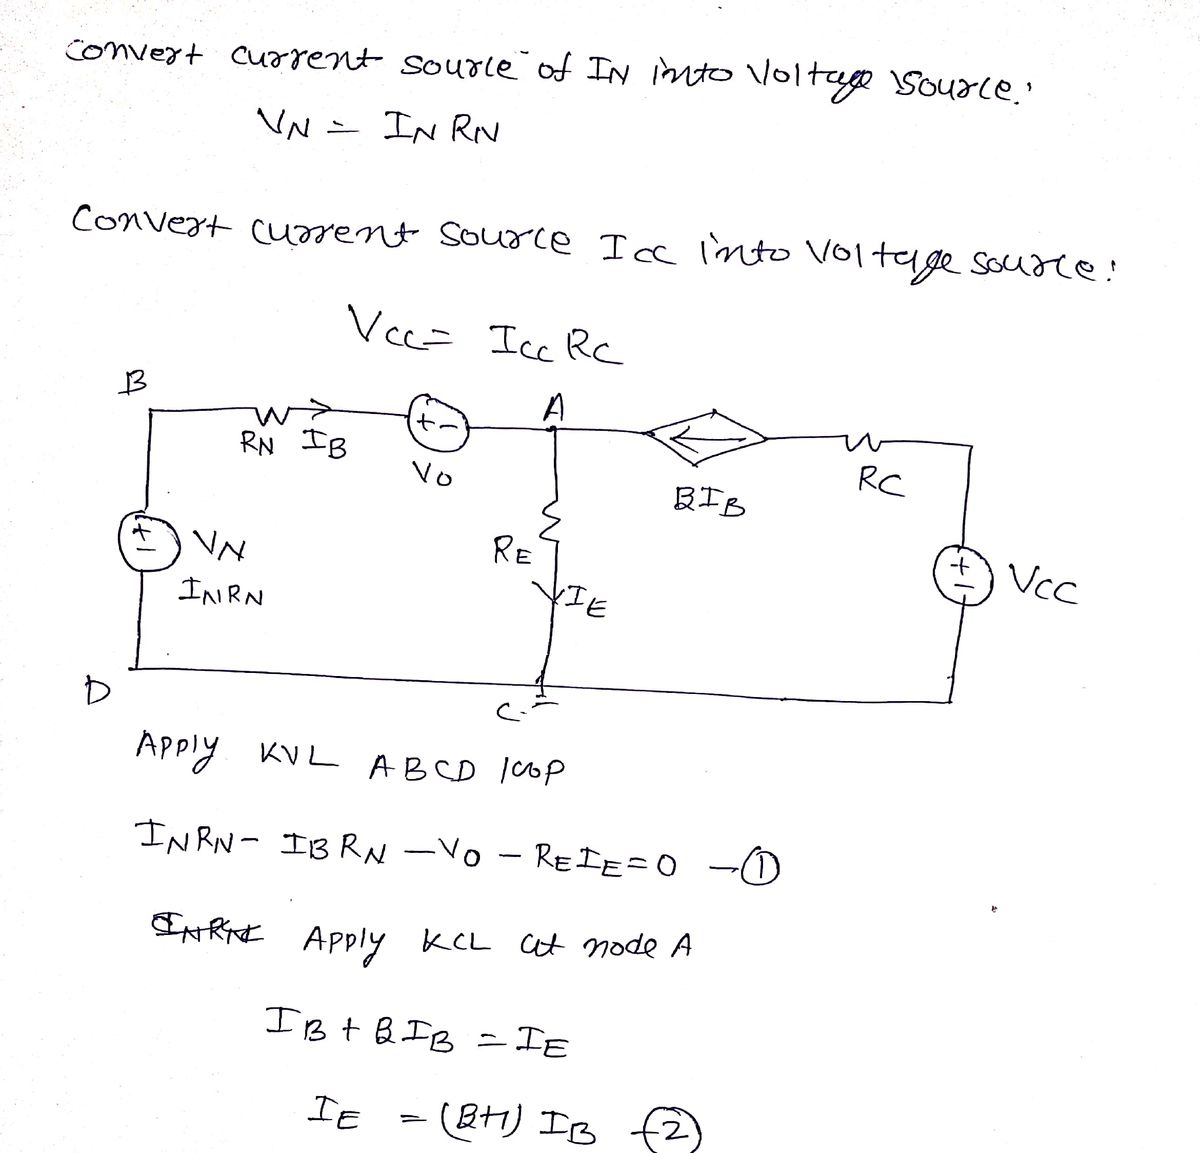 Convert current source of IN into Voltage Source:
VN = IN RN
Convert current source Icc into Voltage source:
Vcc = Icc RC
B
A
RN IB
+ -
Vo
BIB
RC
+
-
VN
INRN
RE
IE
+
-
Vcc
D
C
Apply KVL ABCD loop
INRN - IBRN - Vo - REIE = 0 - ①
Apply KCL at node A
IB + BIB = IE
IE = (B+1) IB - ②